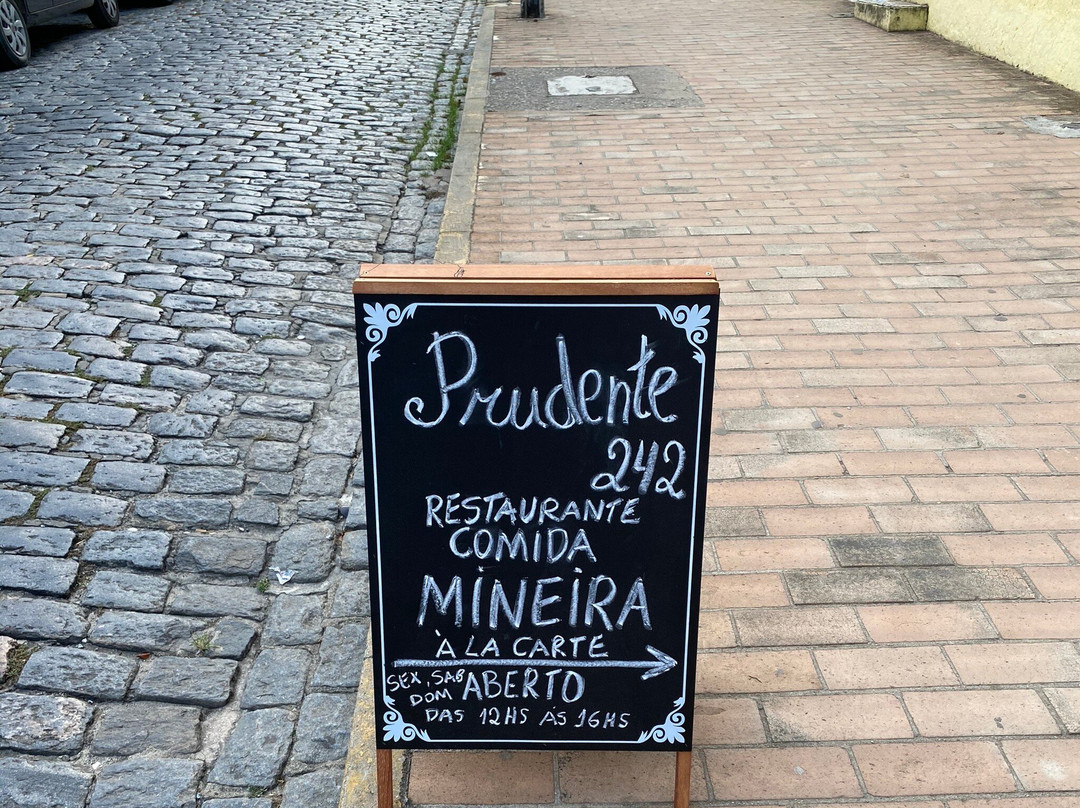 Prudente
242
RESTAURANTE
COMIDA
MINEIRA
À LA CARTE
SEX, SAB
DOM ABERTO
DAS 12HS ÀS 16HS